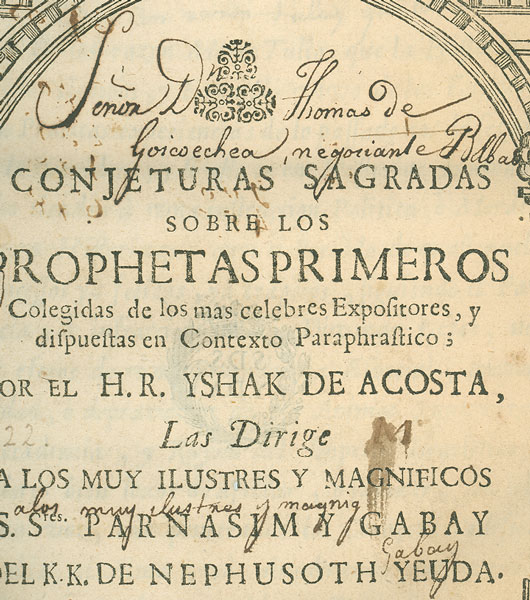 Señor Dn Thomas de
Goicoechea, negociante Bilbao
CONJETURAS SAGRADAS
SOBRE LOS
PROPHETAS PRIMEROS
Colegidas de los mas celebres Expositores, y
dispuestas en Contexto Paraphrastico;
OR EL H. R. YSHAK DE ACOSTA,
22.
Las Dirige M
A LOS MUY ILUSTRES Y MAGNIFICOS
a los muy ilustres y magnig
S.Sres. PARNASIM Y GABAY
Gabay
DEL K.K. DE NEPHUSOTH YEUDA.